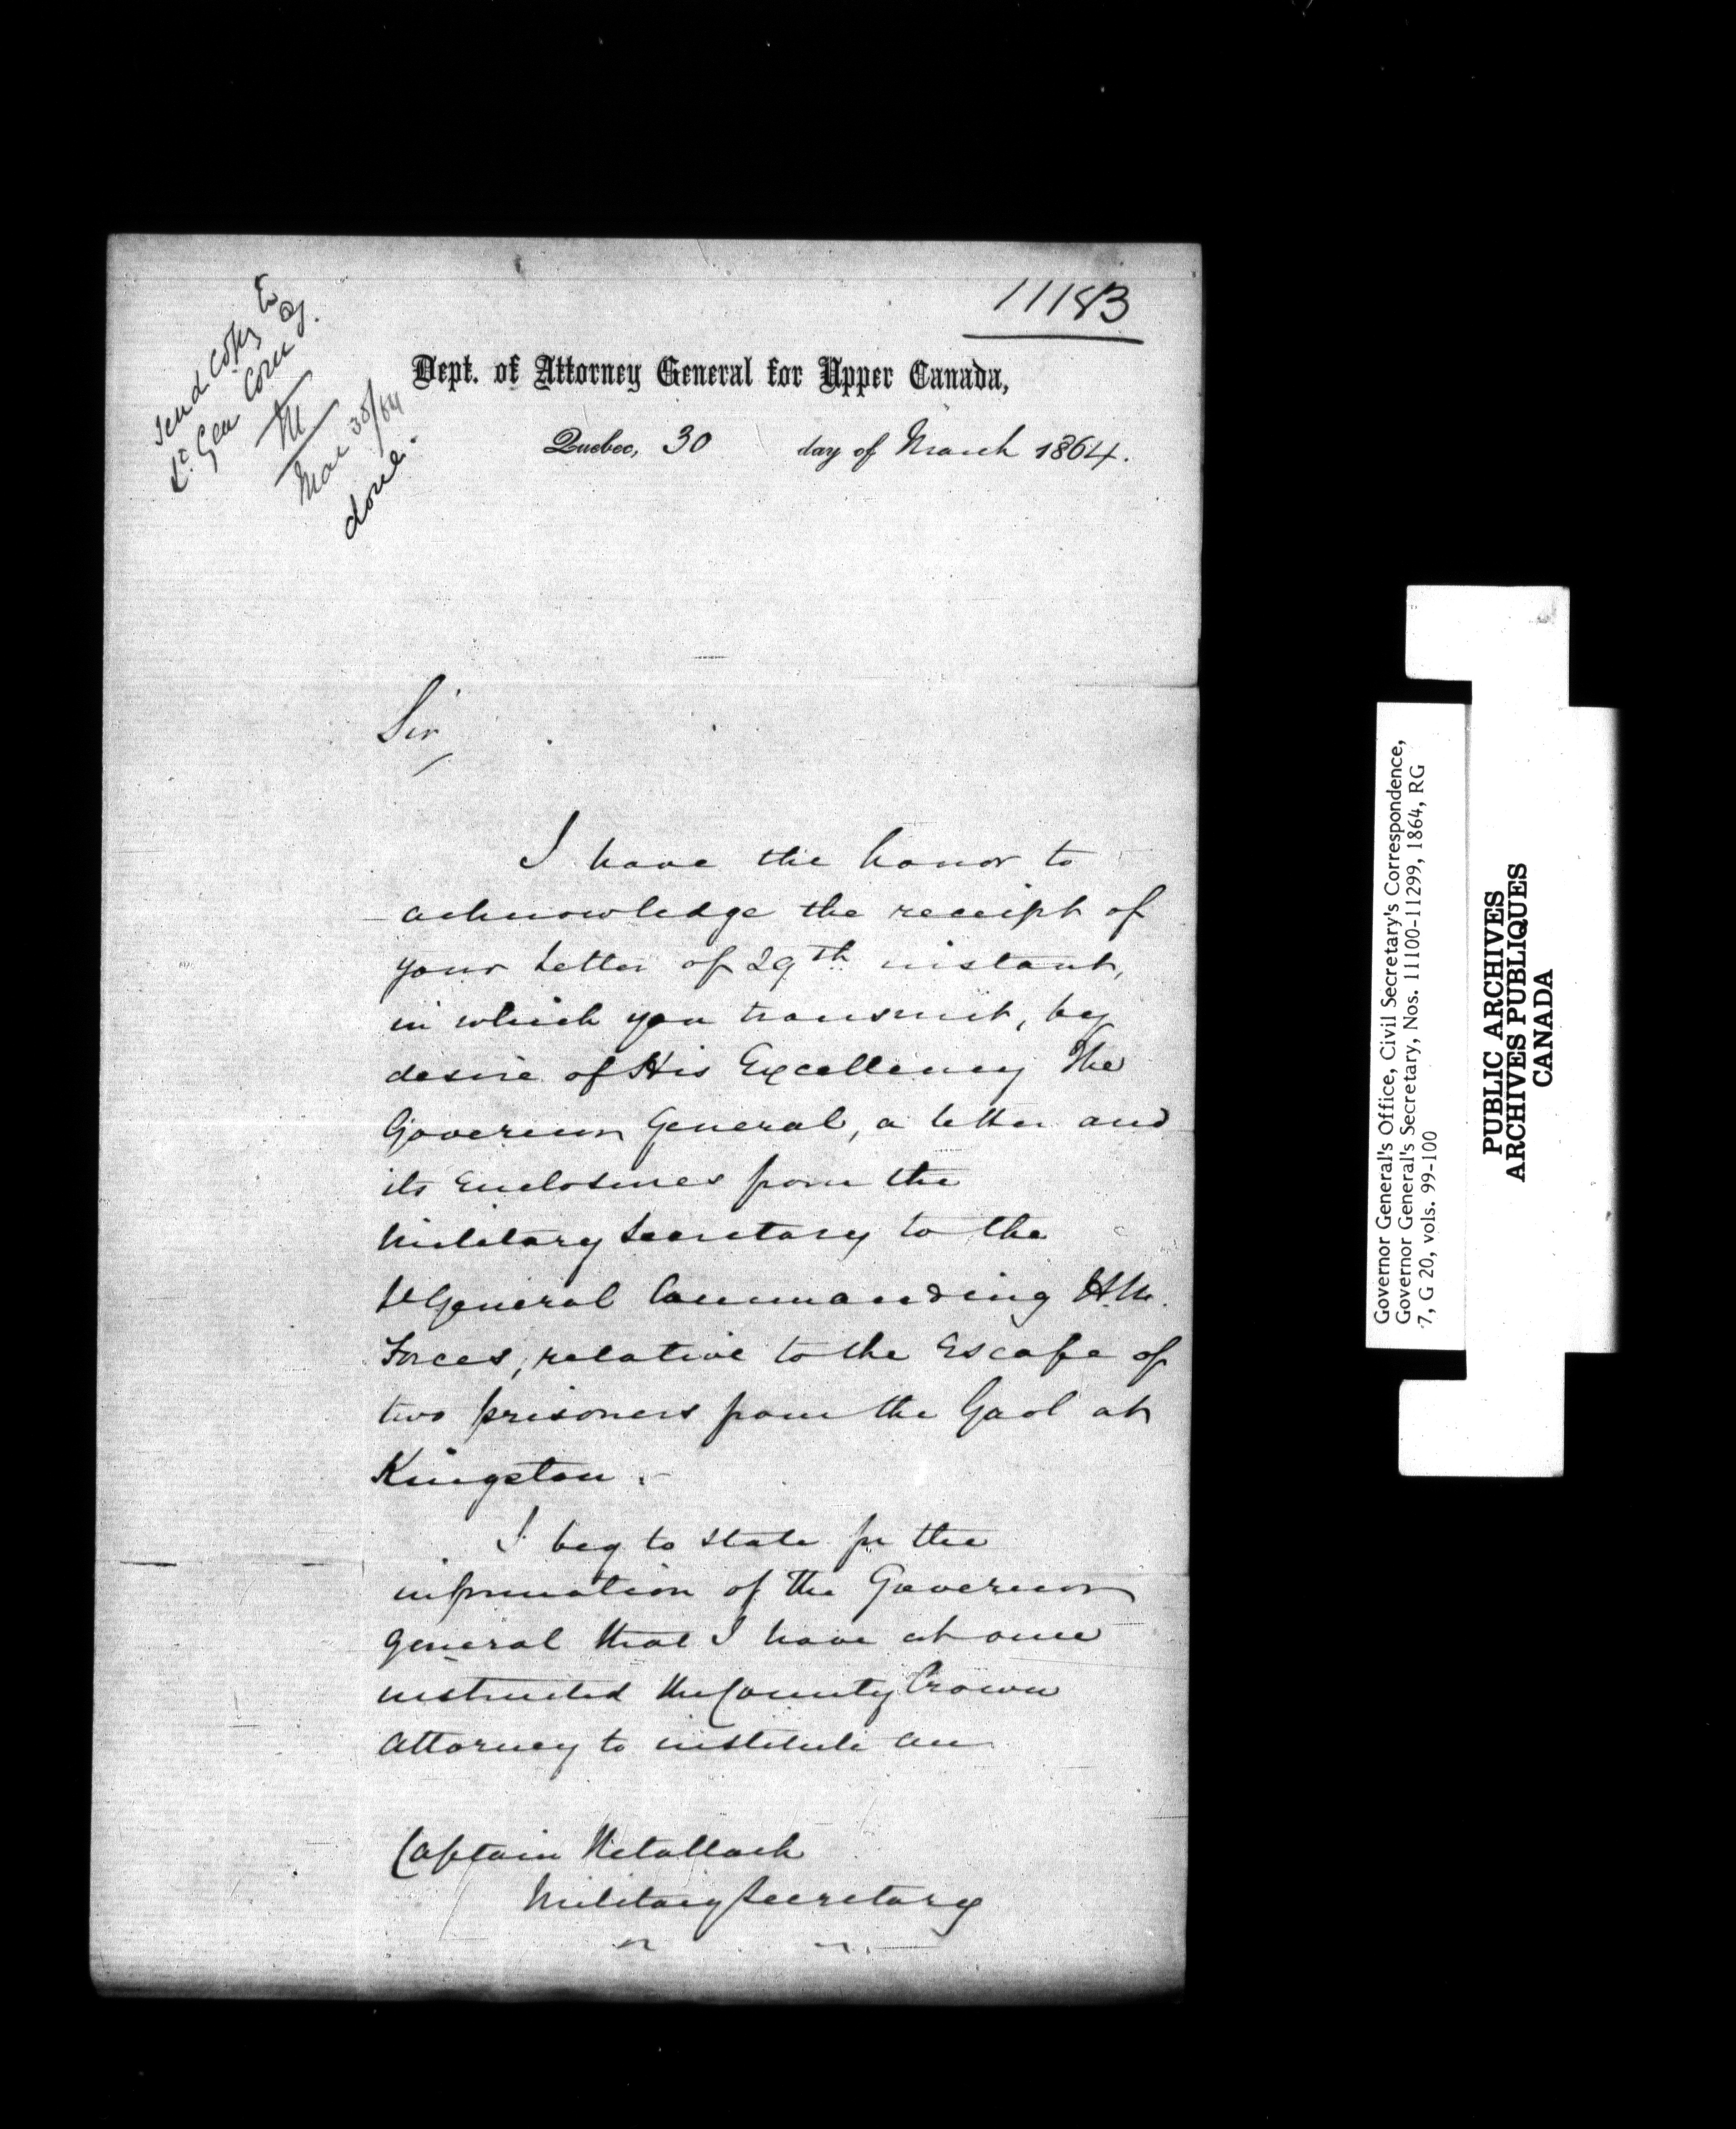 11183
Send Copy to
Lt. Gen Comdg.
M
Mar 30/64
done.
Dept. of Attorney General for Upper Canada,
Quebec, 30 day of March 1864.
Sir
I have the honor to
acknowledge the receipt of
your letter of 29th instant,
in which you transmit, by
desire of His Excellency The
Governor General, a letter and
its Enclosures from the
Military Secretary to the
Lt General Commanding H.M.
Forces, relative to the Escape of
two prisoners from the Gaol at
Kingston.
I beg to state for the
information of The Governor
General that I have at once
instructed the County Crown
Attorney to institute an
Captain Retallack
Military Secretary
Governor General's Office, Civil Secretary's Correspondence,
Governor General's Secretary, Nos. 11100-11299, 1864, RG
7, G 20, vols. 99-100
PUBLIC ARCHIVES
ARCHIVES PUBLIQUES
CANADA